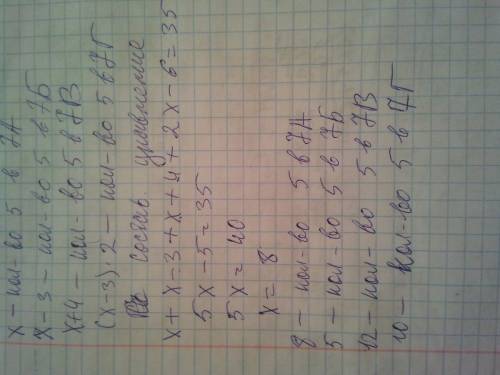 x - кол-во 5 в 7А
x - 3 - кол-во 5 в 7Б
x + 4 - кол-во 5 в 7В
(x - 3) · 2 - кол-во 5 в 7Г
состав. уравнение
x + x - 3 + x + 4 + 2x - 6 = 35
5x - 5 = 35
5x = 40
x = 8
8 - кол-во 5 в 7А
5 - кол-во 5 в 7Б
12 - кол-во 5 в 7В
10 - кол-во 5 в 7Г